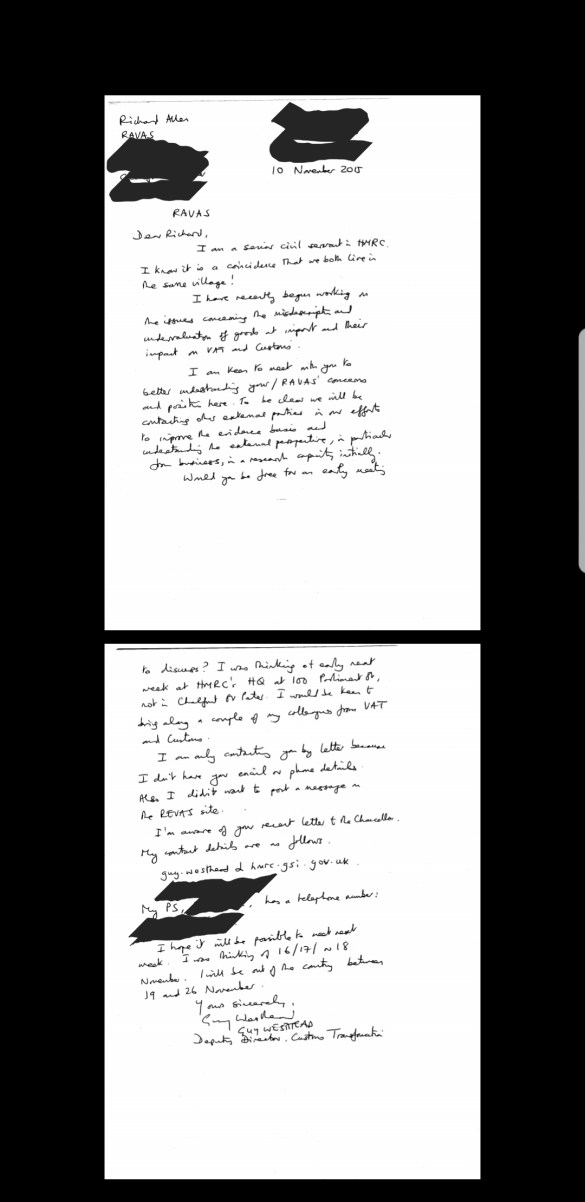 Richard Allen
RAVAS
10 November 2015
RAVAS
Dear Richard,
I am a senior civil servant in HMRC.
I know it is a coincidence that we both live in
the same village!
I have recently begun working on
the issues concerning the misdescription and
undervaluation of goods at import and their
impact on VAT and Customs.
I am keen to meet with you to
better understanding your / RAVAS' concerns
and position here. To be clear we will be
contacting other external parties in our efforts
to improve the evidence basis and
understanding the external perspective, in particular
from business, in a research capacity initially.
Would you be free for an early meeting
to discuss? I was thinking of early next
week at HMRC's HQ at 100 Parliament St,
not in Chalfont St Peter. I would be keen to
bring along a couple of my colleagues from VAT
and Customs.
I am only contacting you by letter because
I don't have your email or phone details.
Also I didn't want to post a message on
the REVAS site.
I'm aware of your recent letter to the Chancellor.
My contact details are as follows.
guy.westhead @ hmrc.gsi.gov.uk.
My PS, , has a telephone number:
I hope it will be possible to meet next
week. I was thinking of 16/17/ or 18
November. I will be out of the country between
19 and 26 November.
Yours sincerely,
Guy Westhead
GUY WESTHEAD
Deputy Director, Customs Transformation